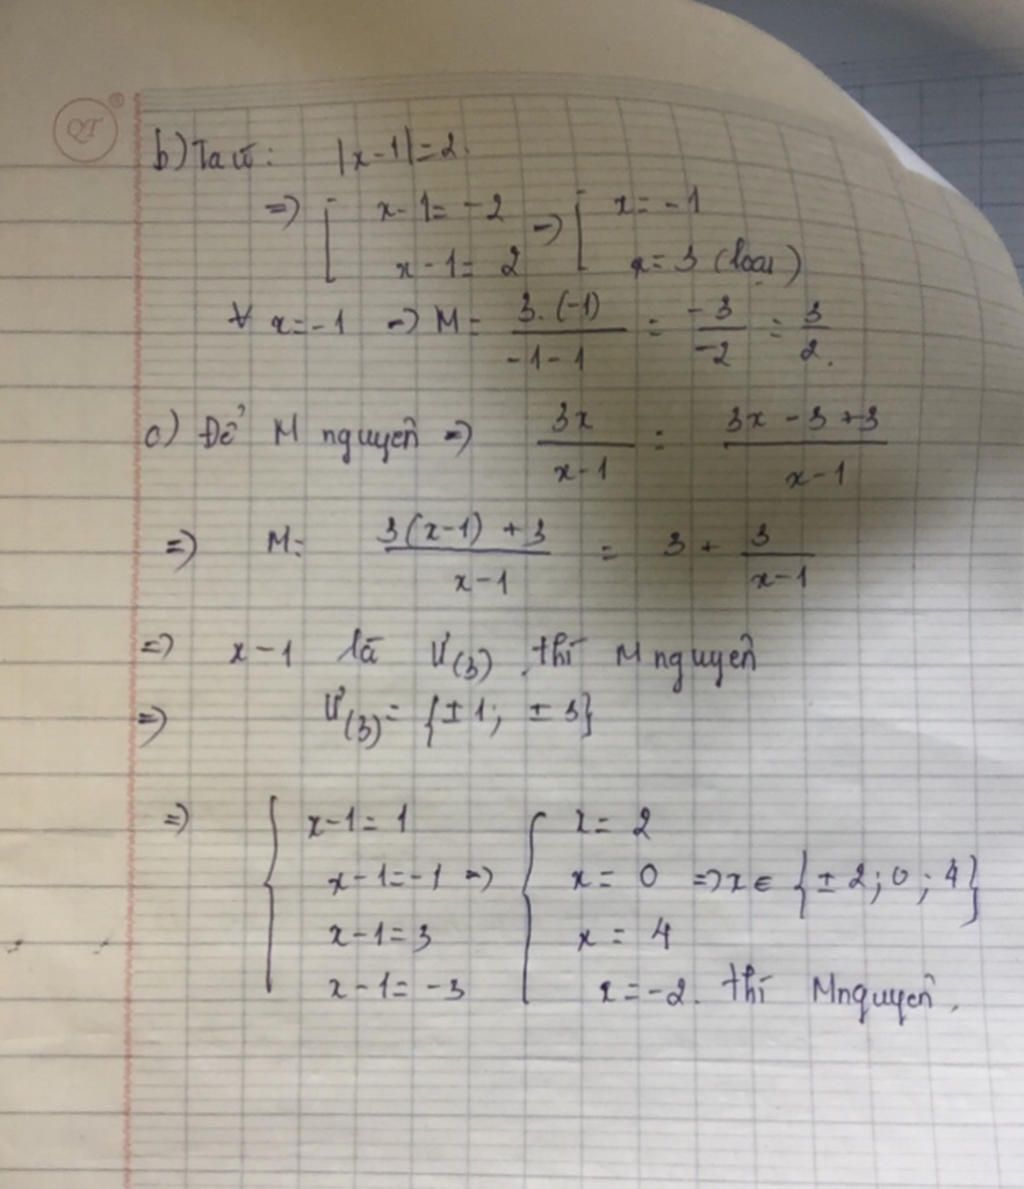 QT
b) Ta có: |x-1|=2.
=> [ x-1=-2 => [ x=-1
x-1=2 x=3 (loại)
∀ x=-1 => M= 3.(-1)/-1-1 = -3/-2 = 3/2.
c) Để M nguyên => 3x/x-1 = 3x-3+3/x-1
=> M= 3(x-1)+3/x-1 = 3+ 3/x-1
=> x-1 là Ư(3) thì M nguyên
=> Ư(3)= {±1; ±3}
=> { x-1=1 { x=2
x-1=-1 => x=0 => x∈ {±2;0;4}
x-1=3 x=4
x-1=-3 x=-2. thì M nguyên.